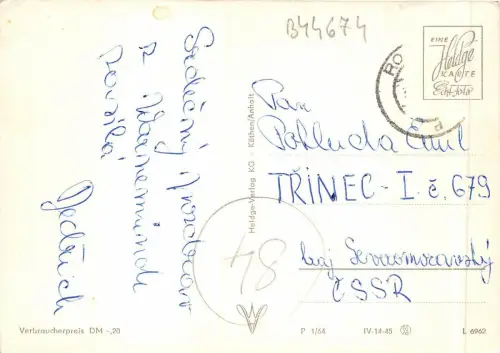 B44674
EINE
Heldge
KARTE
Echt foto
RO
Srdečný pozdrav
z Warnemünde
posílá
Jedlich
Pan
Pohluda Emil
TŘINEC - I. č. 679
kraj Severomoravský
ČSSR
48
Heldge-Verlag KG · Köthen/Anhalt
Verbraucherpreis DM -,20
P 1/64
IV-14-45
L 6962